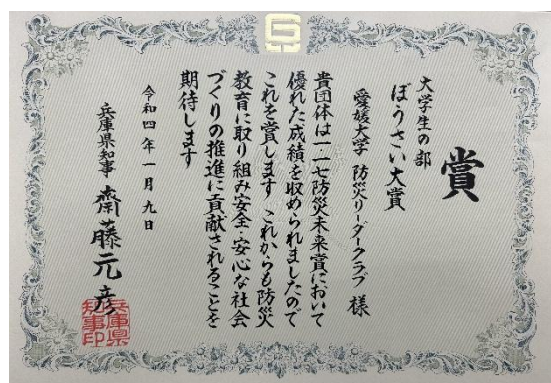 賞
大学生の部
ぼうさい大賞
愛媛大学 防災リーダークラブ 様
貴団体は一・一七防災未来賞において
優れた成績を収められましたので
これを賞します これからも防災
教育に取り組み安全・安心な社会
づくりの推進に貢献されることを
期待します
令和四年一月九日
兵庫県知事 齋藤元彦
兵庫県
知事印